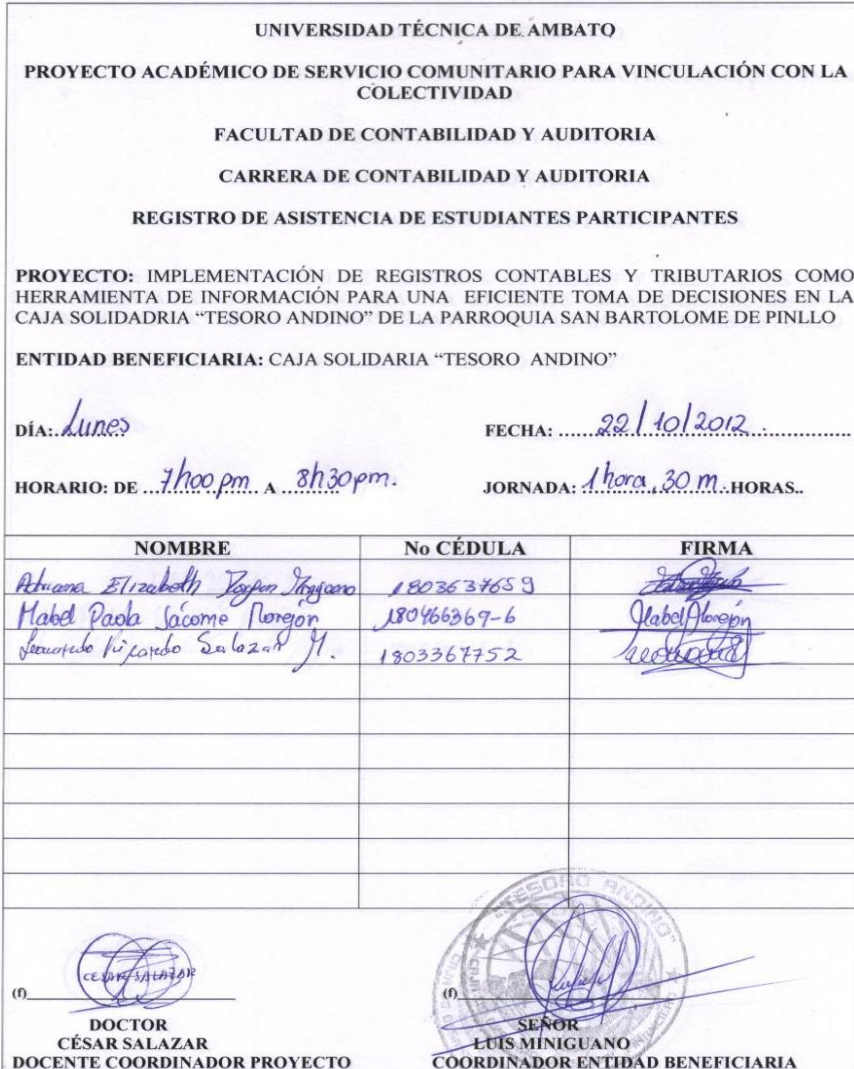 UNIVERSIDAD TÉCNICA DE AMBATO
PROYECTO ACADÉMICO DE SERVICIO COMUNITARIO PARA VINCULACIÓN CON LA
COLECTIVIDAD
FACULTAD DE CONTABILIDAD Y AUDITORIA
CARRERA DE CONTABILIDAD Y AUDITORIA
REGISTRO DE ASISTENCIA DE ESTUDIANTES PARTICIPANTES
PROYECTO: IMPLEMENTACIÓN DE REGISTROS CONTABLES Y TRIBUTARIOS COMO
HERRAMIENTA DE INFORMACIÓN PARA UNA EFICIENTE TOMA DE DECISIONES EN LA
CAJA SOLIDADRIA “TESORO ANDINO” DE LA PARROQUIA SAN BARTOLOME DE PINLLO
ENTIDAD BENEFICIARIA: CAJA SOLIDARIA “TESORO ANDINO”
DÍA: Lunes FECHA: 22/10/2012
HORARIO: DE 7h00 pm A 8h30pm. JORNADA: 1 hora, 30 m. HORAS..
NOMBRE No CÉDULA FIRMA
Adriana Elizabeth 1803637659
Mabel Paola Jácome Morejón 180466369-6 Mabel Morejón
Leonardo Ricardo Salazar M. 1803367752
"TESORO ANDINO"
CESAR SALAZAR
(f) (f)
DOCTOR SEÑOR
CÉSAR SALAZAR LUIS MINIGUANO
DOCENTE COORDINADOR PROYECTO COORDINADOR ENTIDAD BENEFICIARIA